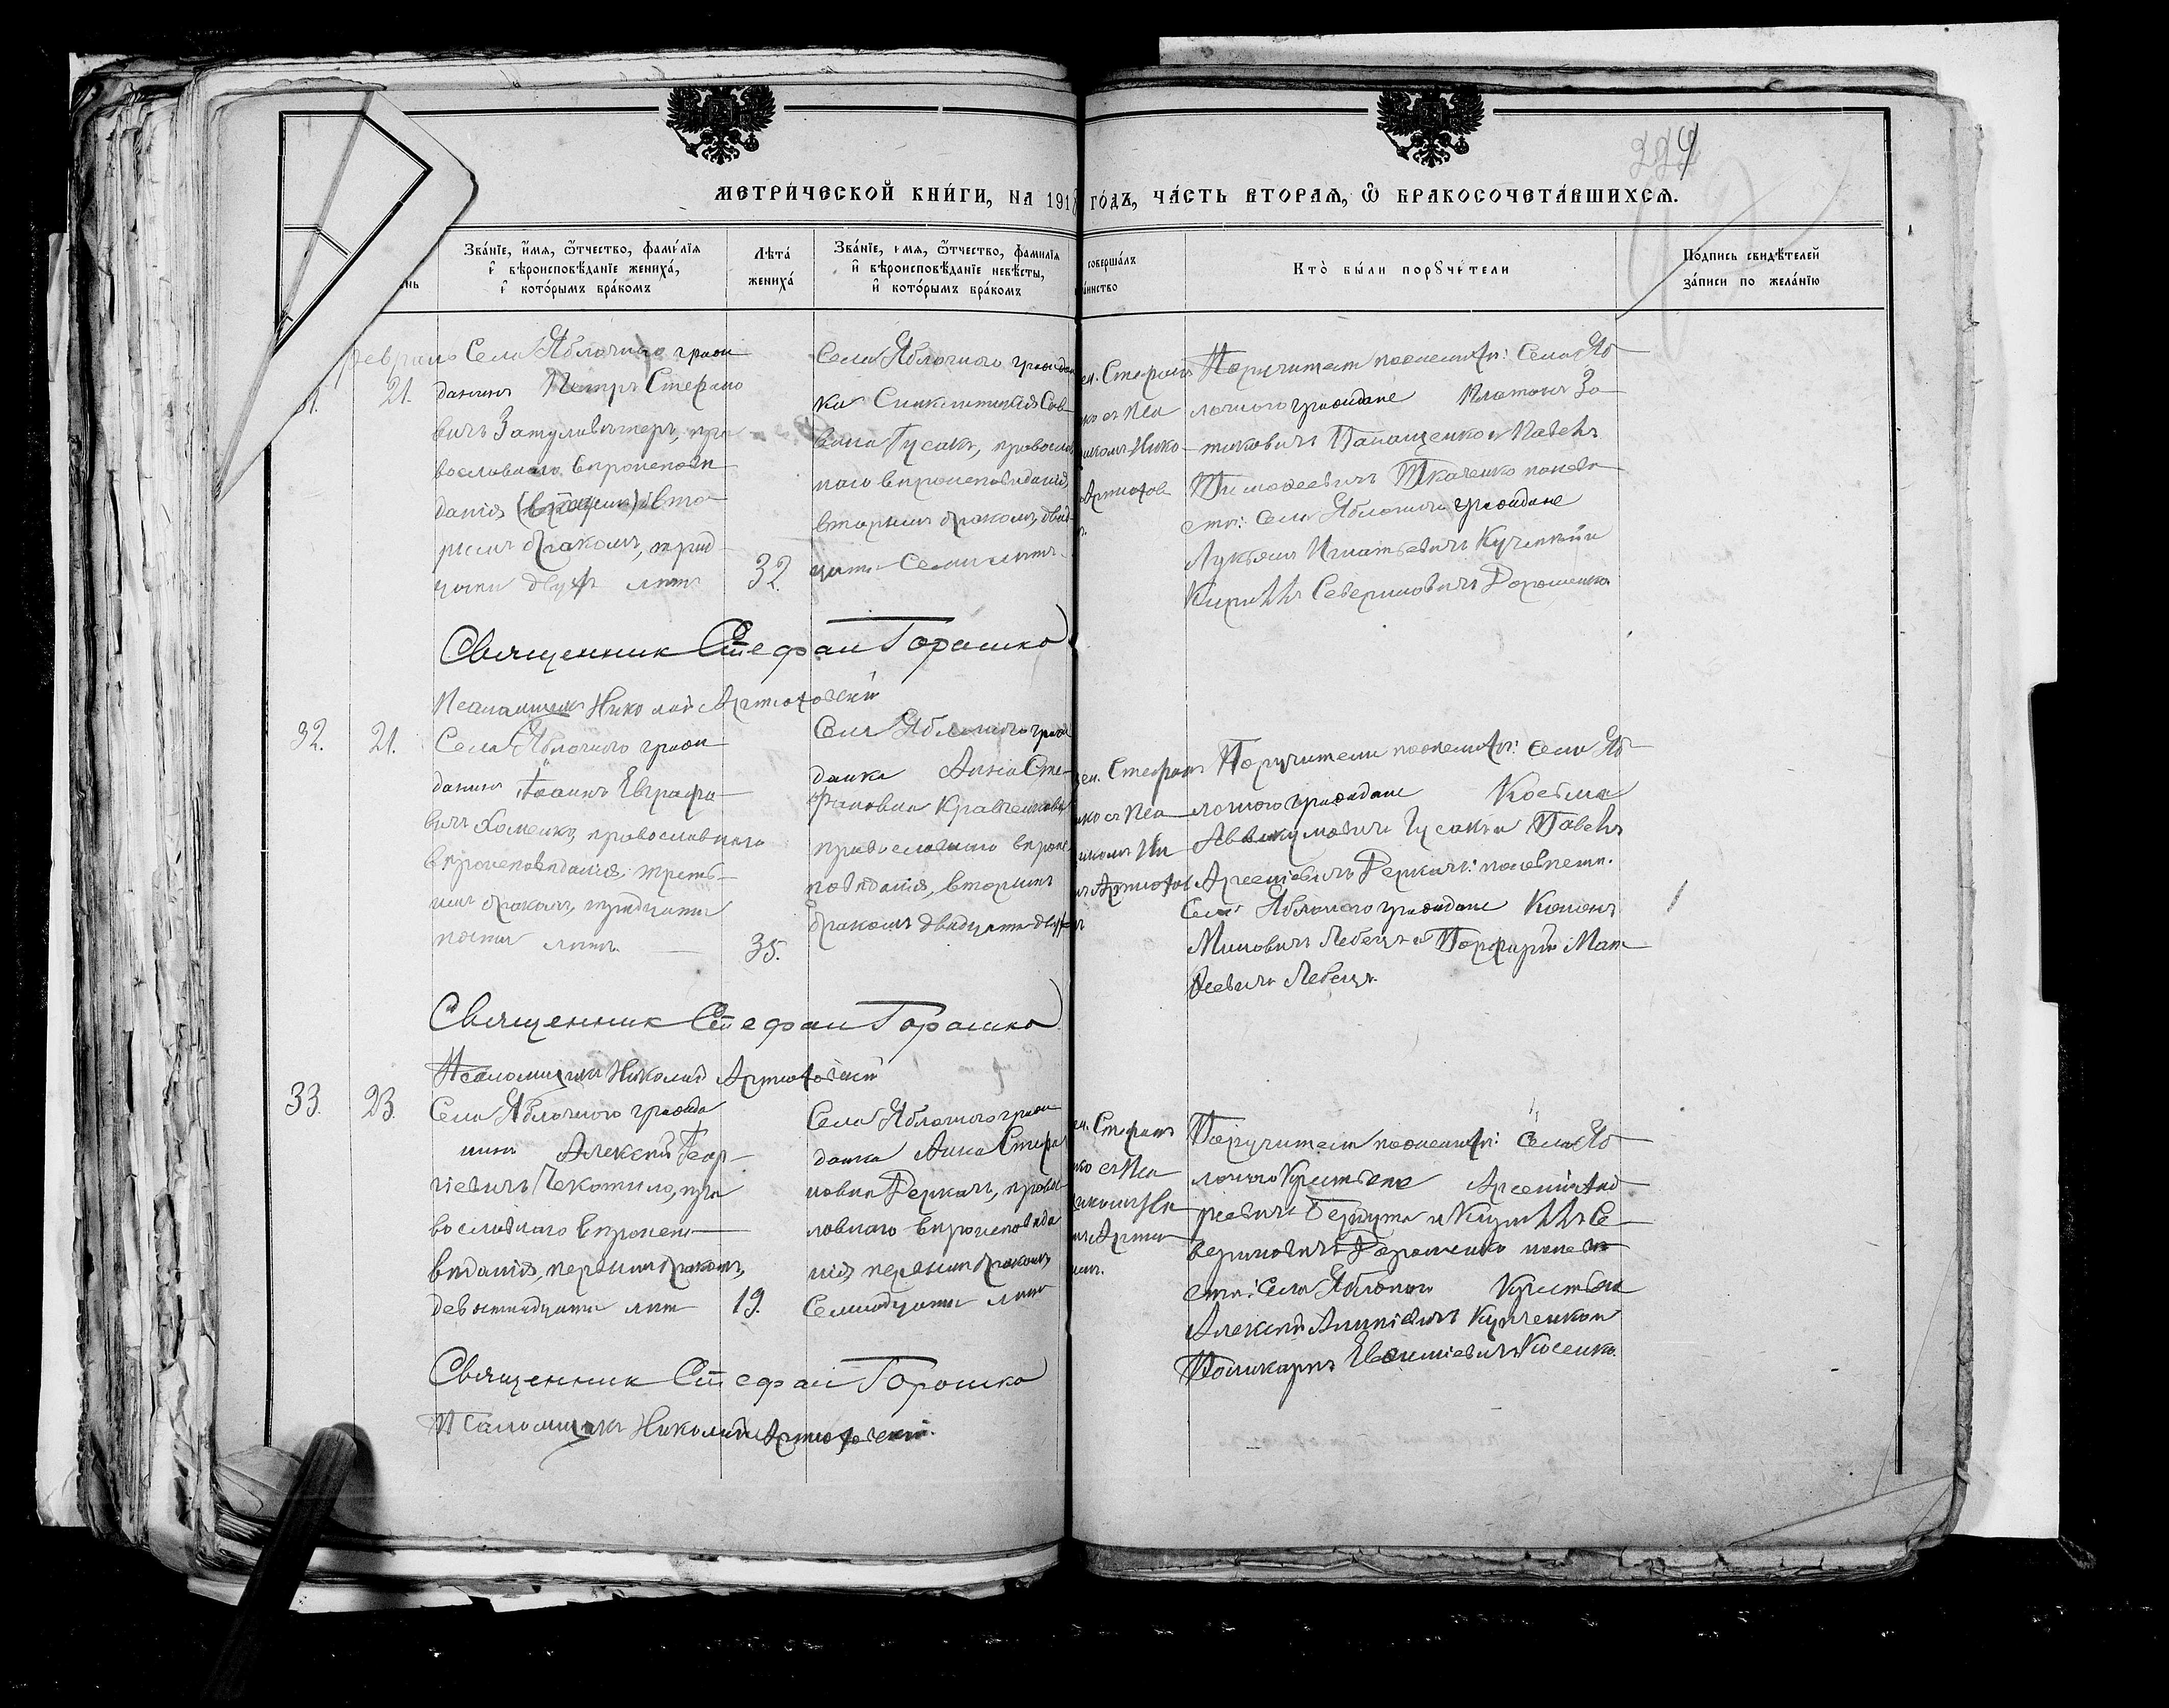 МЕТРИ́ЧЕСКОЙ КНИ́ГИ, НА 1918 ГО́ДЪ, ЧА́СТЬ ВТОРАѦ, Ѿ БРАКОСОЧЕТА́ВШИХСѦ.
224
Зва́нїе, и҆́мѧ, ѻ҆́тчество, фамѝлїѧ
и҆ вѣроисповѣ́данїе жениха́,
и҆ кото́рымъ бра́комъ
Лѣта́
жениха́
Зва́нїе, имѧ, ѻ҆́тчество, фамилїѧ
и҆ вѣроисповѣ́данїе невѣ́сты,
и҆ кото́рымъ бра́комъ
совершалъ
Кто̀ бы́ли порꙋчи́тели
По́дпись свидѣ́телей
за́писи по жела́нїю
февраль
21.
Села Яблочнаго граж
данинъ Петръ Стефано
вичъ Затуливитеръ, пра
вославнаго вѣроисповѣ
данія вто
рымъ бракомъ, трид
цати двухъ лѣтъ
32.
Села Яблочнаго граждан
ка Синклитикія Сав
вина Гусакъ, православ
наго вѣроисповѣданія,
вторымъ бракомъ, двад
цати семи лѣтъ
Стефанъ
съ Пса
Нико
Артюхов
Поручители по женихѣ: Села Яб
лочнаго граждане Платонъ Зо
тиковичъ Панащенко и Павелъ
Тимофеевичъ Ткаченко по невѣ
стѣ: Села Яблочнаго граждане
Лукьянъ Игнатьевичъ Кученкъ и
Кириллъ Севериновичъ Дорошенко
Священник Стефан Горошко
Псаломщикъ Николай Артюховскій
32.
21.
Села Яблочнаго граж
данинъ Іоаннъ Евграфо
вичъ Хоменко, православнаго
вѣроисповѣданія, треть
имъ бракомъ, тридцати
пяти лѣтъ
35.
Села Яблочнаго граж
данка Анна Сте
фановна Кравченкова
православнаго вѣроис
повѣданія, вторымъ
бракомъ двадцати двухъ
Стефанъ
съ Пса
Ни
Артюхов
Поручители по женихѣ: Села Яб
лочнаго граждане Косьма
Аввакумовичъ Гусакъ и Павелъ
Арсеніевичъ Деркачъ: по невѣстѣ.
Села Яблочнаго граждане Кононъ
Миновичъ Лебецъ и Порфирій Мат
ѳеевичъ Лебецъ.
Священник Стефан Горошко
Псаломщикъ Николай Артюховскій
33.
23.
Села Яблочнаго гражда
нинъ Алексѣй Геор
гіевичъ Чекотило, пра
вославнаго вѣроиспо
вѣданія, первымъ бракомъ,
девятнадцати лѣтъ
19.
Села Яблочнаго граж
данка Анна Стефа
новна Деркачъ, правос
лавнаго вѣроисповѣда
нія первымъ бракомъ
семнадцати лѣтъ
Стефанъ
съ Пса
Ни
Артюхов
Поручители по женихѣ: Села Яб
лочнаго Крестьяне Арсеній Анд
реевичъ Бердута и Кириллъ Се
вериновичъ Дорошенко по невѣ
стѣ: Села Яблочнаго Крестьяне
Алексѣй Кириченко и
Поликарпъ Евѳиміевичъ Косенко.
Священник Стефан Горошко
Псаломщикъ Николай Артюховскій.